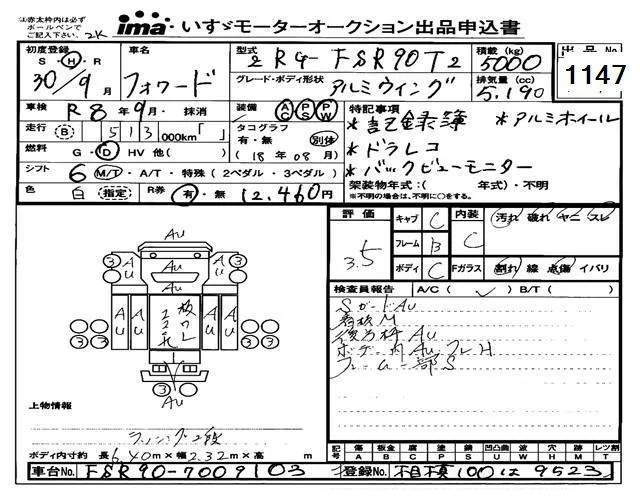 (注)赤太枠内は必ず
ボールペンで
ご記入下さい。 2K
ima いすゞモーターオークション出品申込書
初度登録 S・H・R 30/9月
車名 フォワード
型式 2RG-FSR90T2
積載(kg) 5000
出品No.
1147
グレード・ボディ形状 アルミウイング
排気量(cc) 5.190
車検 R8年9月・抹消
装備 AC PS PW
特記事項
*記録簿 *アルミホイール
*ドラレコ
*バックビューモニター
走行(B) 513 000km「 」
タコグラフ 有・無 別体
(18年08月)
燃料 G・D HV 他( )
シフト 6 M/T・A/T・特殊(2ペダル・3ペダル)
架装物年式:( 年式)・不明
※不明の場合は、不明に○をする。
色 白(指定) R券 有・無 12,460円
評価 3.5
キャブ C
フレーム B
ボディ C
内装 C 汚れ 破れ ヤニ スレ
Fガラス 割れ 線 点傷 イバリ
検査員報告 A/C( ✓ ) B/T( )
SガードAU
看板M
後方枠AU
ボデー内AU フレH
フレーム一部S
AU
3 AU AU AU 3
AU AU AU AU
3 3
3 3
AU
上物情報
ラッシング2段
ボディ内寸約 長6.40m×幅2.32m×高 m
記号 傷 A 板金 B 腐 C 塗 P 錆 S 凹凸曲 U 波 W 穴 H 難 M 跡 X レツ割 T
車台No. FSR90-7009103
登録No. 相模100は9523